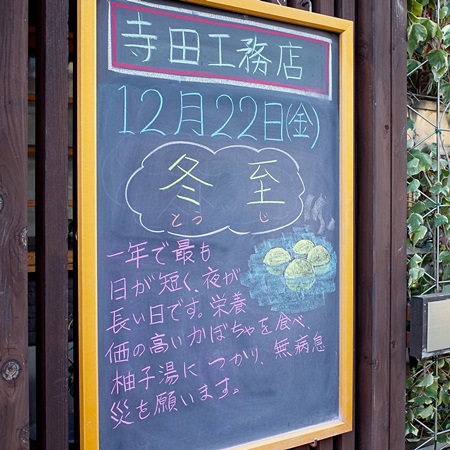 寺田工務店
12月22日(金)
冬至
とつじ
一年で最も
日が短く、夜が
長い日です。栄養
価の高いかぼちゃを食べ、
柚子湯につかり、無病息
災を願います。